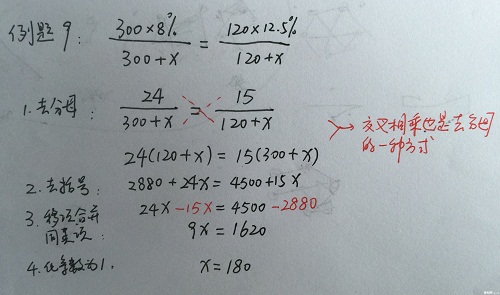 例题9: 300×8%/300+x = 120×12.5%/120+x
1.去分母: 24/300+x = 15/120+x
交叉相乘也是去分母
的一种方式
24(120+x) = 15(300+x)
2.去括号: 2880+24x = 4500+15x
3.移项合并 24x-15x = 4500-2880
同类项: 9x = 1620
4.化系数为1. x = 180